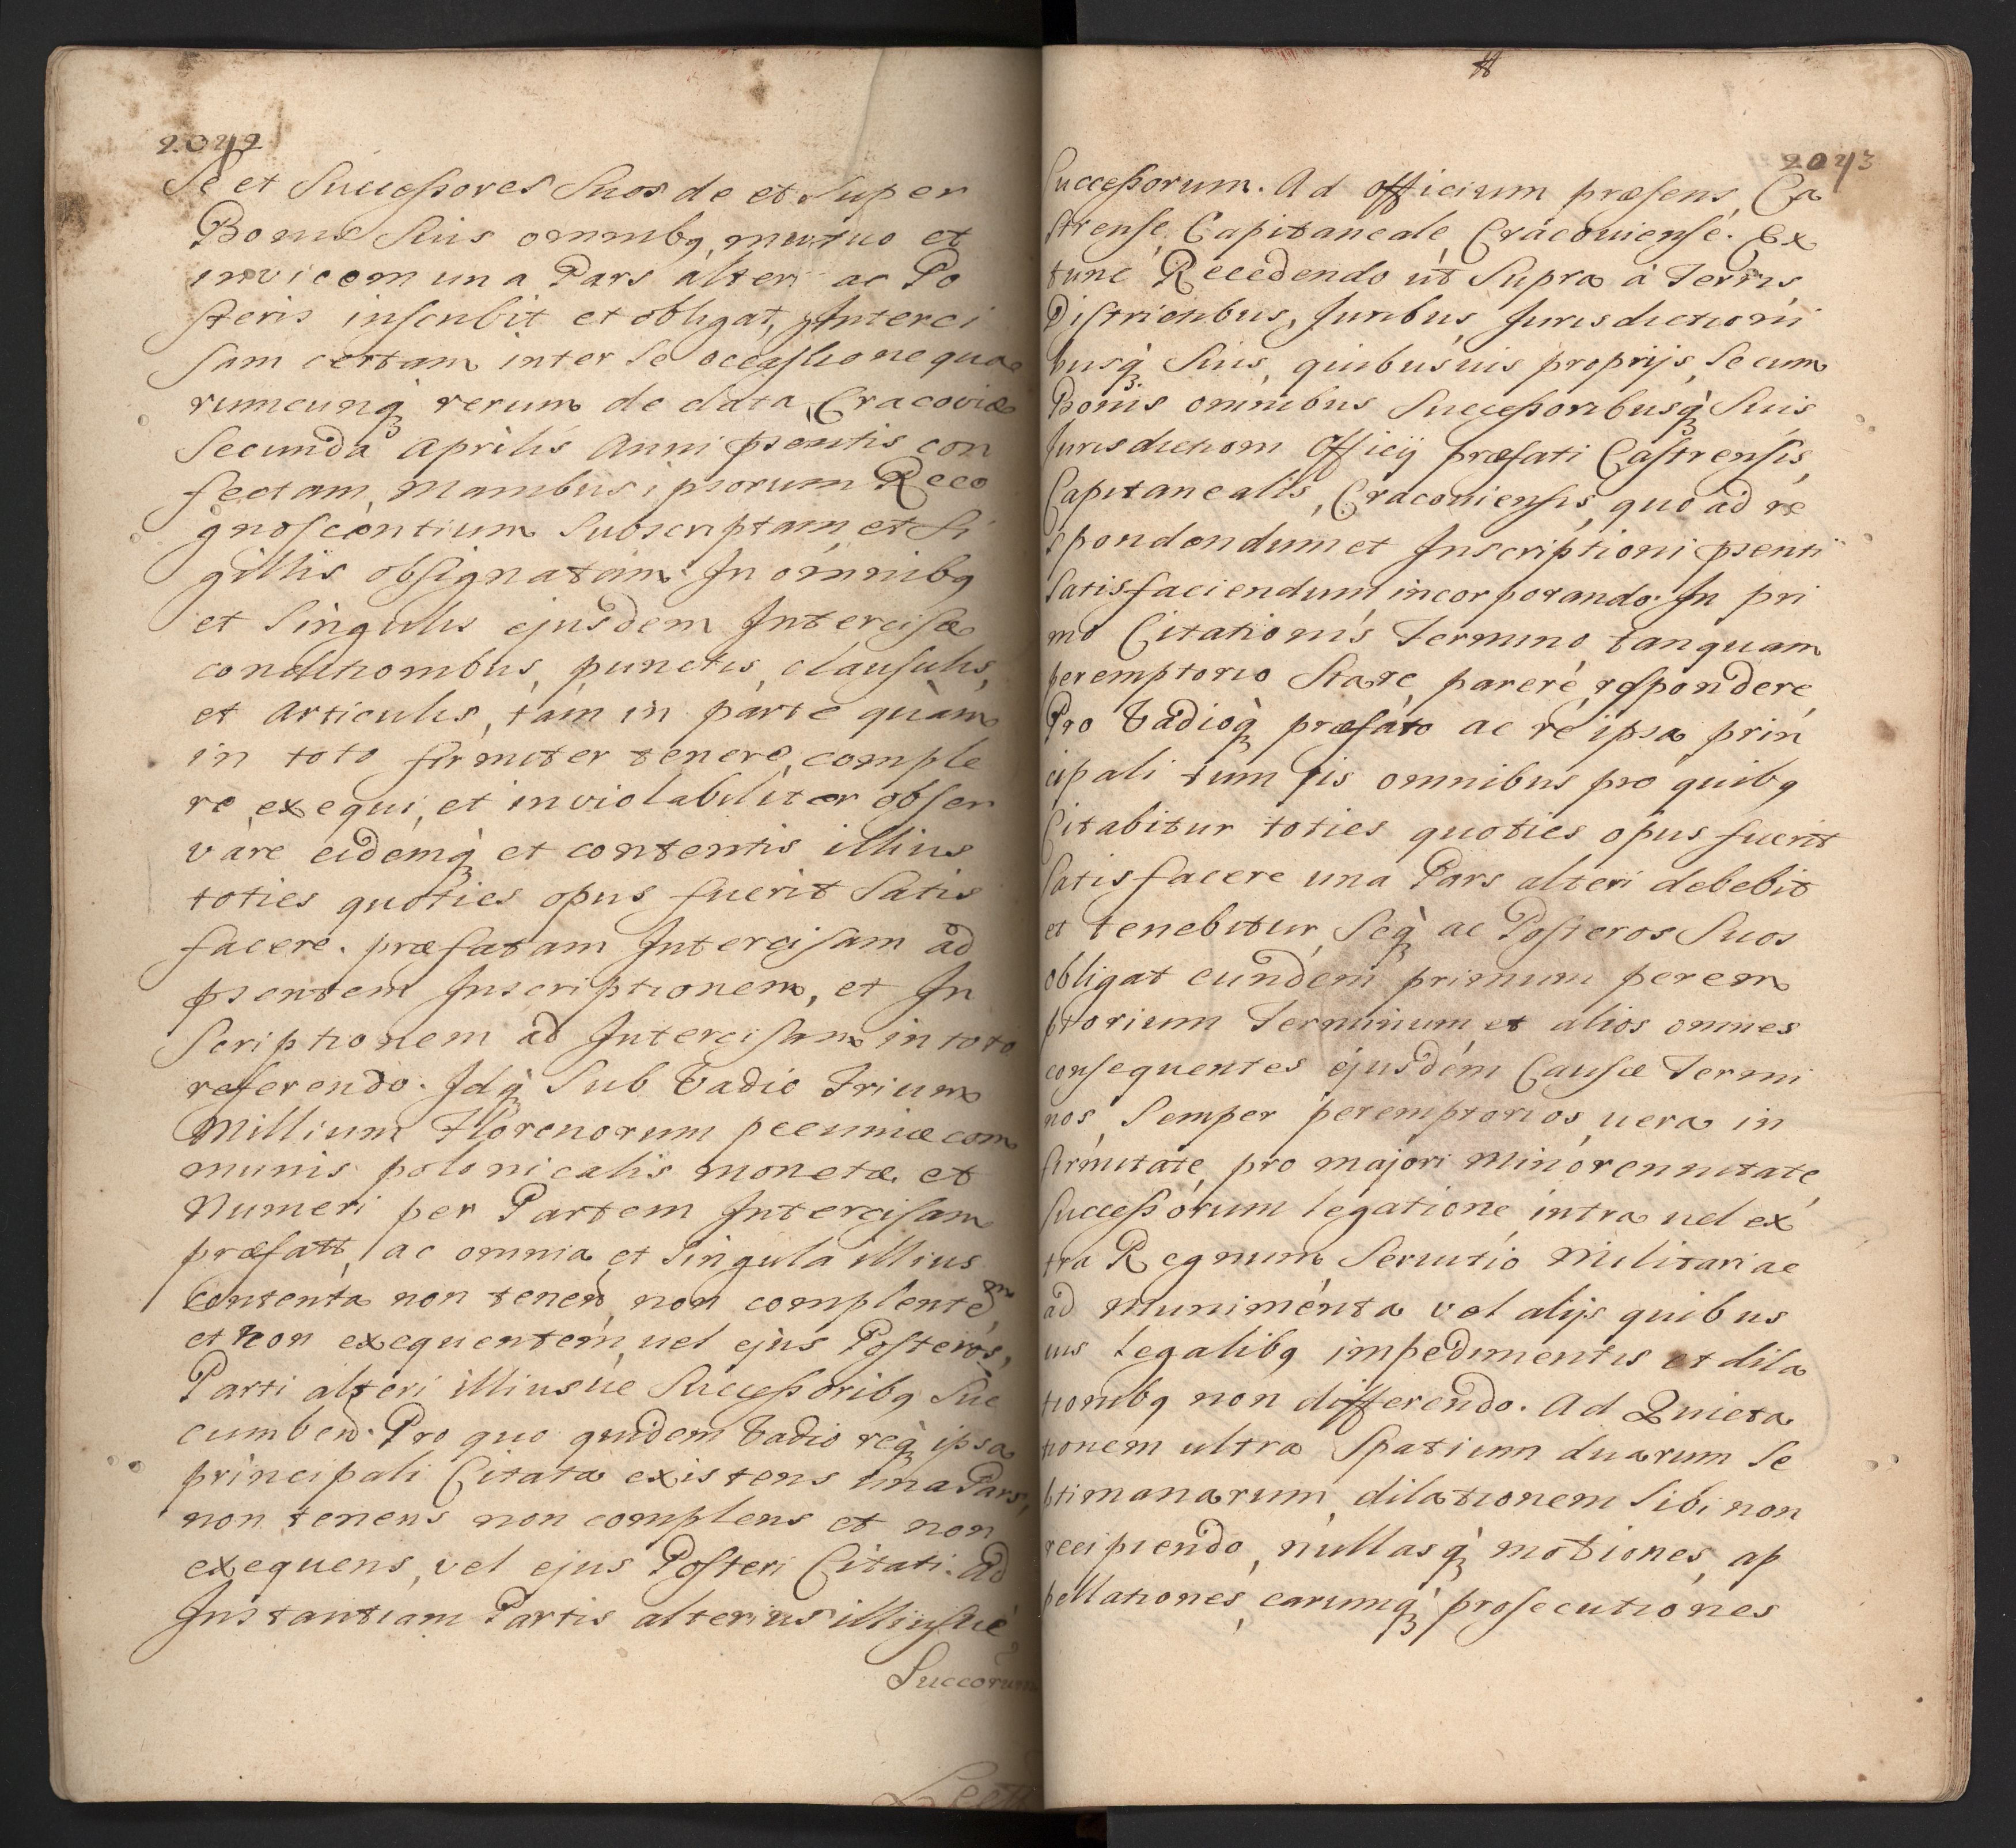 2042
Se et Successores Suos de et Super
Bonis Suis omnibq mutuo et
invicem una Pars alteri ac Po
steris inscribit et obligat, Interci
sam certam inter se occasione qua
rumcunq rerum de data Cracoviæ
Secunda Aprilis Anni psentis con
fectam, Manibus ipsorum Reco
gnoscentium Subscriptam et Si
gillis obsignatam. In omnibq
et Singulis ejusdem Intercisæ
conditionibus, punctis, clausulis,
et Articulis, tàm in parte quàm
in toto firmiter tenere, comple
re, exequi, et inviolabiliter obser
vàre eidemq et contentis illius
toties quoties opus fuerit Satis
facere. præfatam Intercisam ad
psentem Inscriptionem, et In
Scriptionem ad Intercisam in toto
referendo. Idq Sub Vadio Trium
Millium Florenorum pecuniæ com
munis polonicalis monetæ et
Numeri per Partem Intercisam
præfatt, ac omnia et Singula illius
Contenta non tenen, non complentem,
et non exequentem, vel ejus Posteros,
Parti alteri illiusve Successoribq Suc
cumben. Pro quo quidem Vadio req ipsa
principali Citata existens una Pars,
non tenens non complens et non
exequens, vel ejus Posteri Citati. Ad
Instantiam Partis alterius illiusve
Succorum
2043
Successorum. Ad officium præsens, Ca
strense, Capitaneale, Cracoviense. Ex
tunc Recedendo ut Supra à Terris,
Districtibus, Juribus Jurisdictioni
busq Suis, quibusvis proprijs, Se cum
Bonis omnibus Successoribusq Suis
Jurisdictioni Officij præfati Castrensis,
Capitanealis, Cracoviensis, quo ad re
spondendum et Inscriptioni psenti
Satisfaciendum incorporando. In pri
mo Citationis Termino, tanquam
peremptorio Stare, parere, respondere,
Pro Vadioq præfato ac re ipsa prin
cipali tum iis omnibus pro quibq
Citabitur toties quoties opus fuerit
Satisfacere una Pars alteri debebit
et tenebitur, Seq ac Posteros Suos
obligat eundem primum perem
ptorium Terminum et alios omnes
consequentes ejusdem Causæ Termi
nos, Semper peremptorios, vera in
firmitate, pro majori Minorennitate
Successorum legatione intra vel ex
tra Regnum, Servitio Militari ac
ad Munimenta vel alijs quibus
vis Legalibq impedimentis et dila
tionibq non differendo. Ad Quieta
tionem ultra Spatium duarum Se
ptimanarum dilationem Sibi non
recipiendo, nullasq motiones, ap
pellationes, earumq prosecutiones